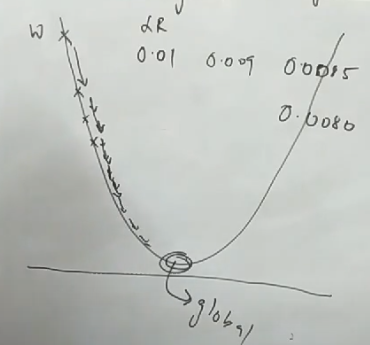 W
LR
0.01 0.009 0.0085
0.0080
global